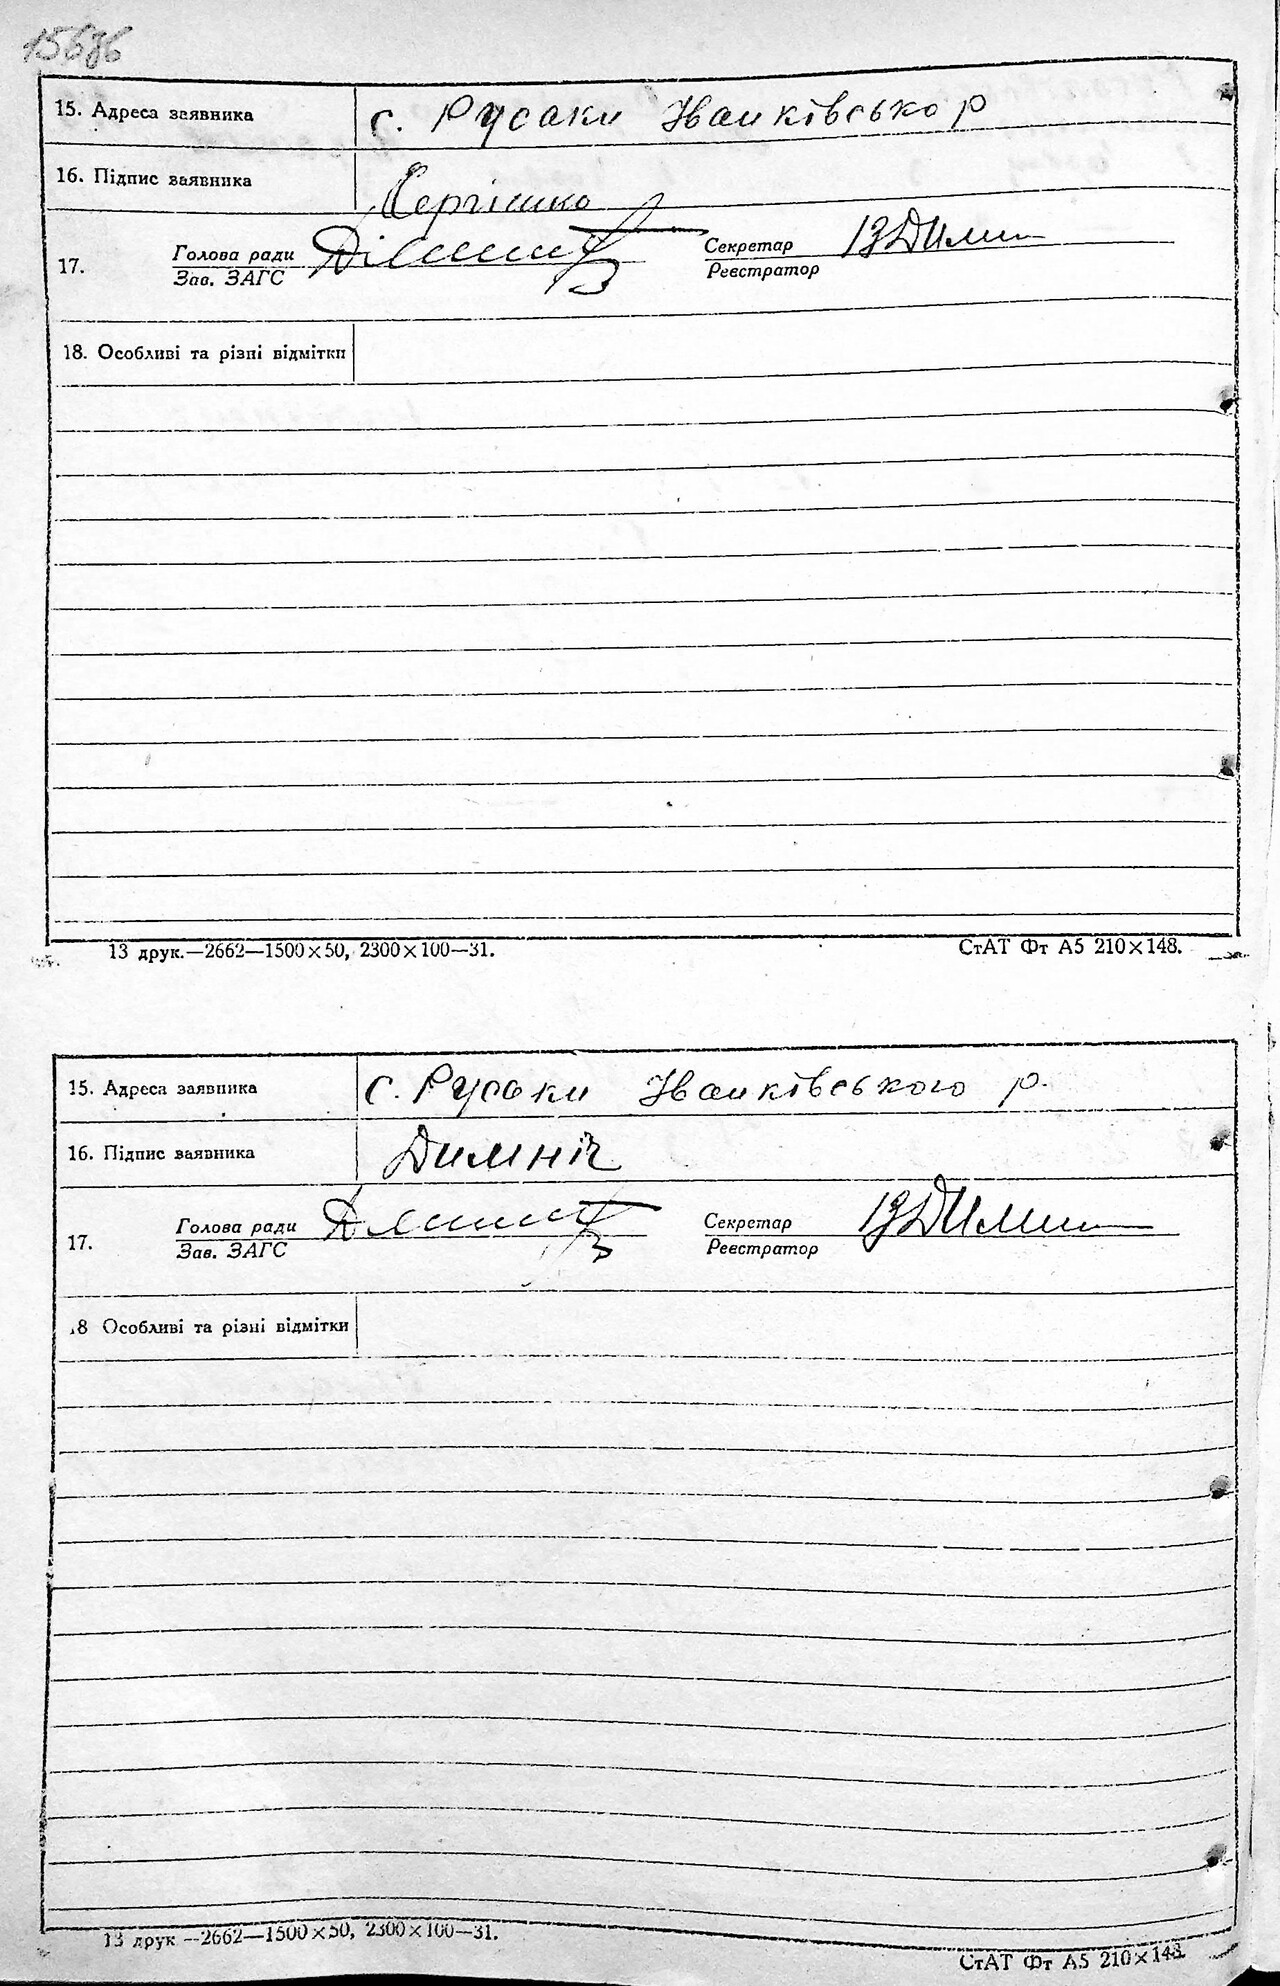 15. Адреса заявника с. Русаки Іванківсько р
16. Підпис заявника Сергієнко
Голова ради Секретар
17.
Зав. ЗАГС Реєстратор
18. Особливі та різні відмітки
13 друк.—2662—1500×50, 2300×100—31. СтАТ Фт А5 210×148.
15. Адреса заявника с. Русаки Іванківського р.
16. Підпис заявника Димніч
Голова ради Секретар
17.
Зав. ЗАГС Реєстратор
18 Особливі та різні відмітки
13 друк —2662—1500×50, 2300×100—31.
СтАТ Фт А5 210×148.